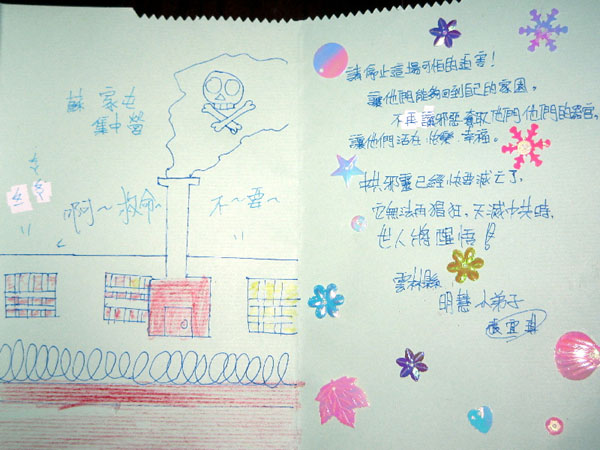 蘇家屯
集中營
啊～救命～
不～要～
請停止這場可怕的迫害！
讓他們能夠回到自己的家園，
不再讓邪惡奪取他們他們的器官，
讓他們活在快樂幸福。
共邪靈已經快要滅亡了，
它無法再猖狂，天滅中共時，
世人將醒悟！
雲林縣
明慧小弟子